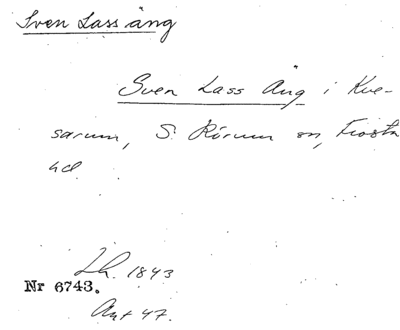 Sven Lass äng
Sven Lass Äng i Kve-
sarum, S. Rörum sn, Frosta
hd
Lh. 1843
Nr 6743.
Ant 47.